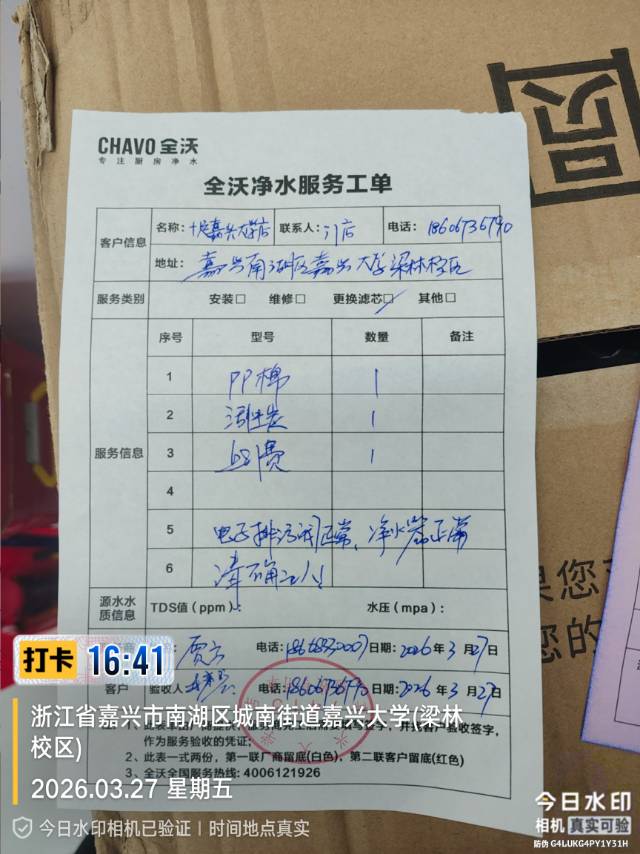 CHAVO 全沃
专注厨房净水
全沃净水服务工单
客户信息
名称: 嘉兴大学店
联系人: 门店
电话: 18606736790
地址: 嘉兴南湖区嘉兴大学梁林校区
服务类别
安装□ 维修□ 更换滤芯☑ 其他□
服务信息
序号 型号 数量 备注
1 PP棉 1
2 1
3 费 1
4
5 电子排污阀正常、净水器正常
6 请确认
源水水质信息
TDS值 (ppm):
水压 (mpa):
电话: 日期: 2026年3月27日
客户 验收人: 电话: 18606736790 日期: 2026年3月27日
作为服务验收的凭证;
2、此表一式两份, 第一联厂商留底(白色), 第二联客户留底(红色)
3、全沃全国服务热线: 4006121926
打卡 16:41
浙江省嘉兴市南湖区城南街道嘉兴大学(梁林校区)
2026.03.27 星期五
今日水印相机已验证 | 时间地点真实
今日水印
相机 真实可验
防伪 G4LUKG4PY1Y31H
果您
您的